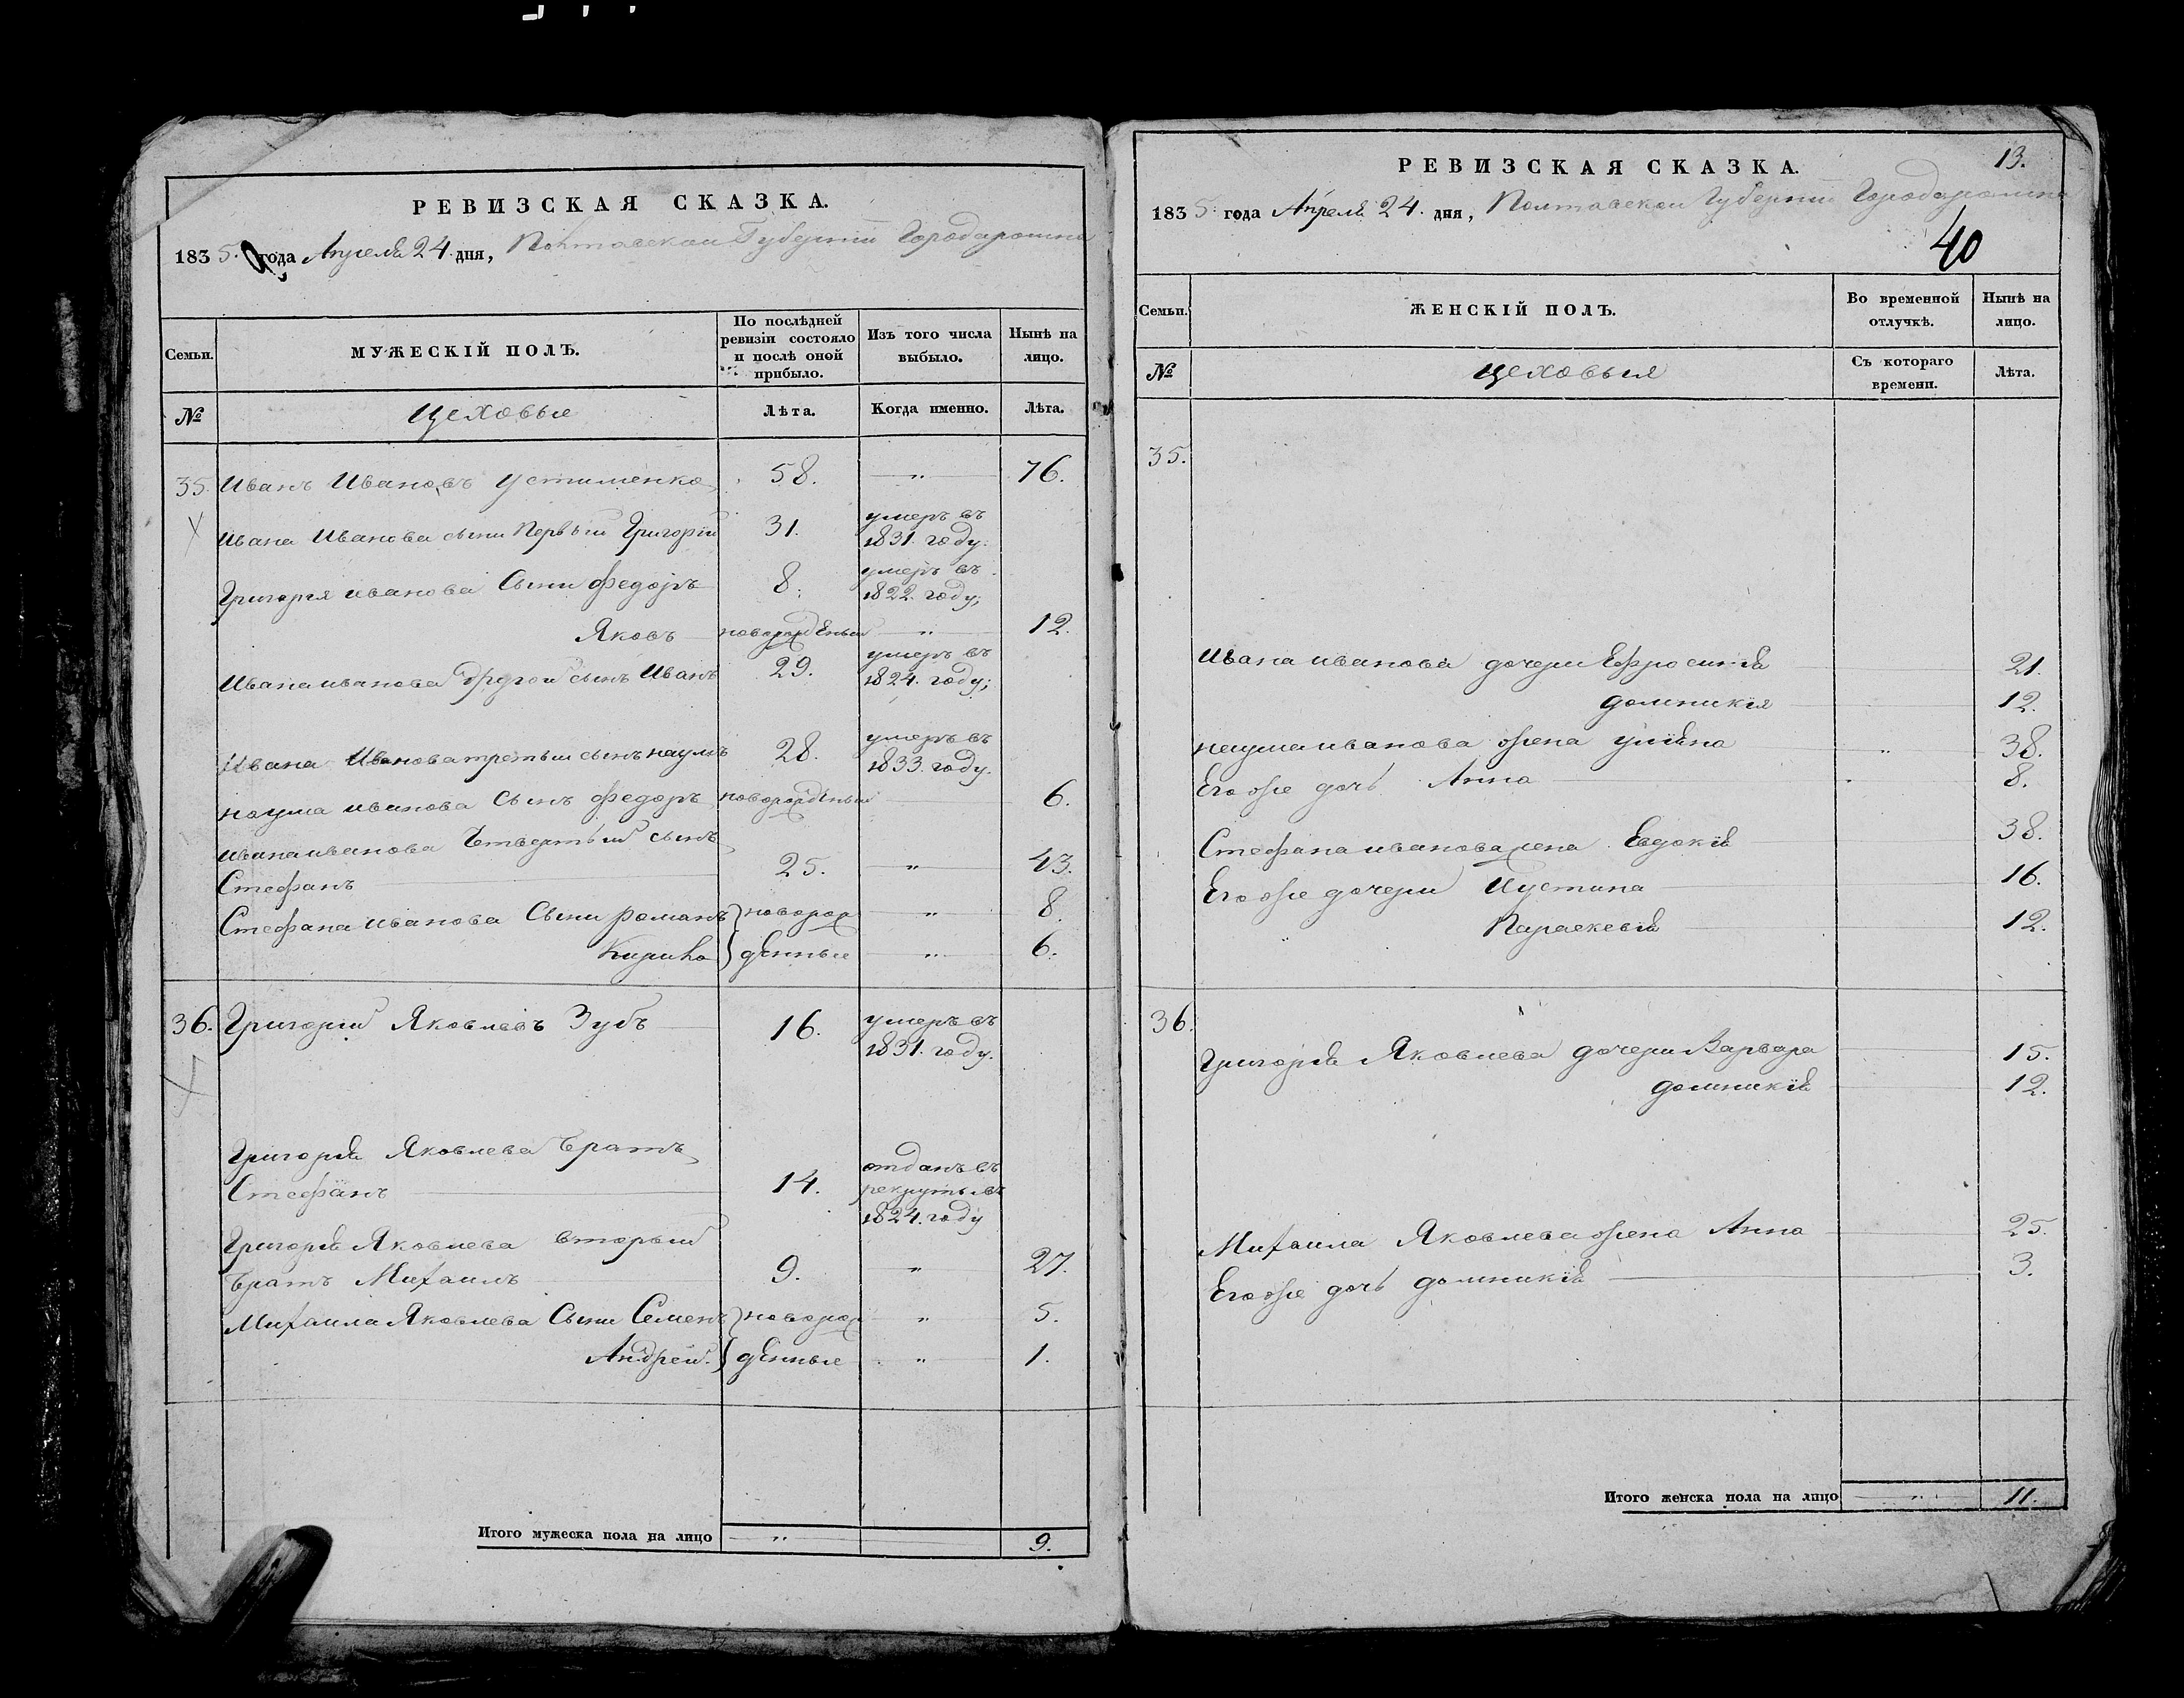 РЕВИЗСКАЯ СКАЗКА.
1835. года Апреля 24. дня, Полтавской Губернии
Семьи.
МУЖЕСКІЙ ПОЛЪ.
По послѣдней ревизіи состояло и послѣ оной прибыло.
Изъ того числа выбыло.
Нынѣ на лицо.
№
Цеховые
Лѣта.
Когда именно.
Лѣта.
35. Иванъ Ивановъ Устименко 58. „ 76.
Ивана Иванова сыни Первый Григорій 31. умеръ въ 1831. году.
Григорія иванова Сыни федоръ 8. умеръ въ 1822. году;
Яковъ новорожденый „ 12.
Ивана иванова другой сынъ Иванъ 29. умеръ въ 1824. году;
Ивана Иванова третьи сынъ наумъ 28. умеръ въ 1833. году.
наума иванова Сынъ федоръ новорожденый 6.
Ивана иванова Четвертый сынъ
Стефанъ 25. „ 43.
Стефана иванова Сыни романъ } новорож „ 8.
Кирило } денные „ 6.
36. Григорій Яковлевъ Зубъ 16. умеръ въ 1831. году.
Григорія Яковлева братъ
Стефанъ 14. отданъ въ рекруты въ 1824. году
Григорія Яковлева вторый
братъ Михаилъ 9. „ 27.
Михаила Яковлева Сыни Семенъ } новорож „ 5.
Андрей. } денные „ 1.
Итого мужеска пола на лицо „ 9.
13.
РЕВИЗСКАЯ СКАЗКА.
1835. года Апреля 24. дня, Полтавской Губернии
40
Семьи.
ЖЕНСКІЙ ПОЛЪ.
Во временной отлучкѣ.
Нынѣ на лицо.
№
Цеховыя
Съ котораго времени.
Лѣта.
35.
Ивана иванова дочери Ефросинія 21.
домникія 12.
наума иванова жена уліяна „ 38.
Его же дочь Анна 8.
Стефана иванова жена Евдокія 38.
Его же дочери Иустина 16.
Параскевія 12.
36.
Григорія Яковлева дочери Варвара 15.
домникія 12.
Михаила Яковлева жена Анна 25.
Его же дочь домникія 3.
Итого женска пола на лицо „ 11.